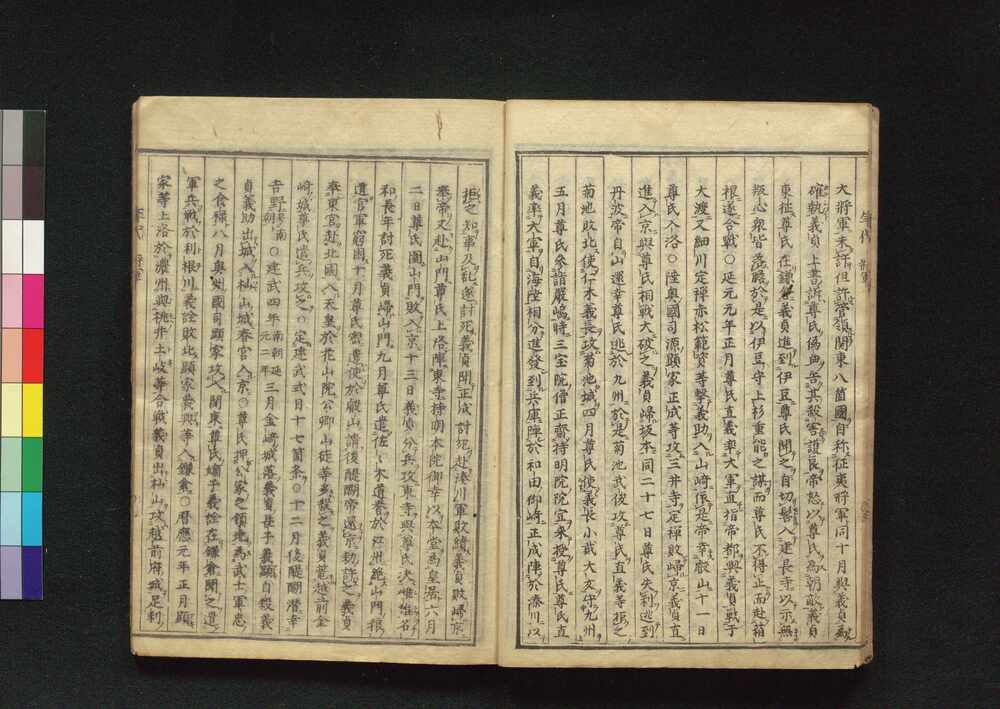 大將軍未許但許管領関東八箇國自称征夷將軍同十月與義貞為
確執義貞上書訴尊氏偽曲告其殺害護良帝怒以尊氏為朝敵義貞
東征尊氏在鎌倉義貞進到伊豆尊氏聞之自切髻入建長寺以示無
叛心衆皆落膽於是以伊豆守上杉重能之謀而尊氏不得止而赴箱
根遂合戦〇延元元年正月尊氏直義率大軍直指帝都與義貞戦于
大渡又細川定禪赤松範資等撃義助入山崎依是帝幸叡山十一日
尊氏入洛〇陸奥國司源顕家正成等攻三井寺定禪敗帰京義貞直
進入京與尊氏相戦大破之義貞帰坂本同二十七日尊氏失利逃到
丹波帝自山還幸尊氏逃於九州於是菊池武俊攻尊氏直義等拒之
菊池敗北使仁木義長攻菊池城四月尊氏使義長小貳大友守九州
五月尊氏参詣嚴嶋時三宝院僧正齎持明院院宣来授尊氏尊氏直
義率大軍自海陸相分進發到兵庫陣於和田御崎正成陣於湊川以
拒之知事及乱遂討死義貞聞正成討死赴湊川軍敗績義貞敗帰京
奉帝又赴山門尊氏上洛陣東寺持明本院御幸以本堂為皇居六月
二日尊氏圍山門敗入京十三日義貞分兵攻東寺與尊氏决雌雄名
和長年討死義貞帰山門九月尊氏遣佐々木道誉於江州絶山門糧
道官軍窮困十月尊氏密遣使於叡山請後醍醐帝還京劫許之義貞
奉東宮赴北國入天皇於花山院公卿山徒等多殺之義貞麓越前金
崎城尊氏遣兵攻之〇定建武式目十七箇条〇十二月後醍醐潜幸
吉野是南朝〇建武四年南朝延元二年三月金崎城落義貞長子義顕自殺義
貞義助出城入杣山城春宮入京〇尊氏押公家之領地為武士軍忠
之食禄八月奥州國司顕家攻入関東尊氏嫡子義詮在鎌倉聞之遣
軍兵戦於利根川義詮敗北顕家義興等入鎌倉〇暦應元年正月顕
家等上洛於濃州與桃井土岐等合戦義貞出杣山攻越前府城足利